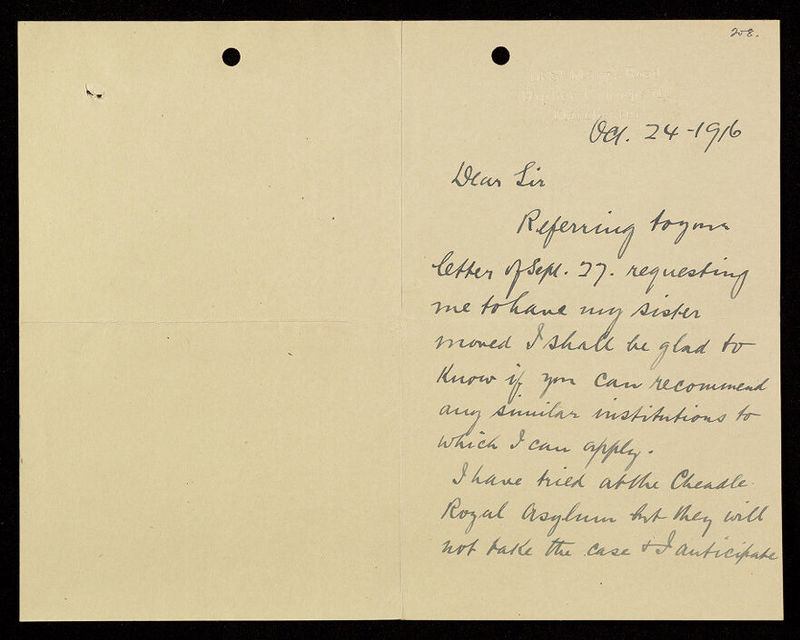 208.
Oct. 24-1916
Dear Sir
Referring to your
letter of Sept. 27. requesting
me to have my sister
moved I shall be glad to
know if you can recommend
any similar institutions to
which I can apply.
I have tried at the Cheadle
Royal Asylum but they will
not take the case & I anticipate